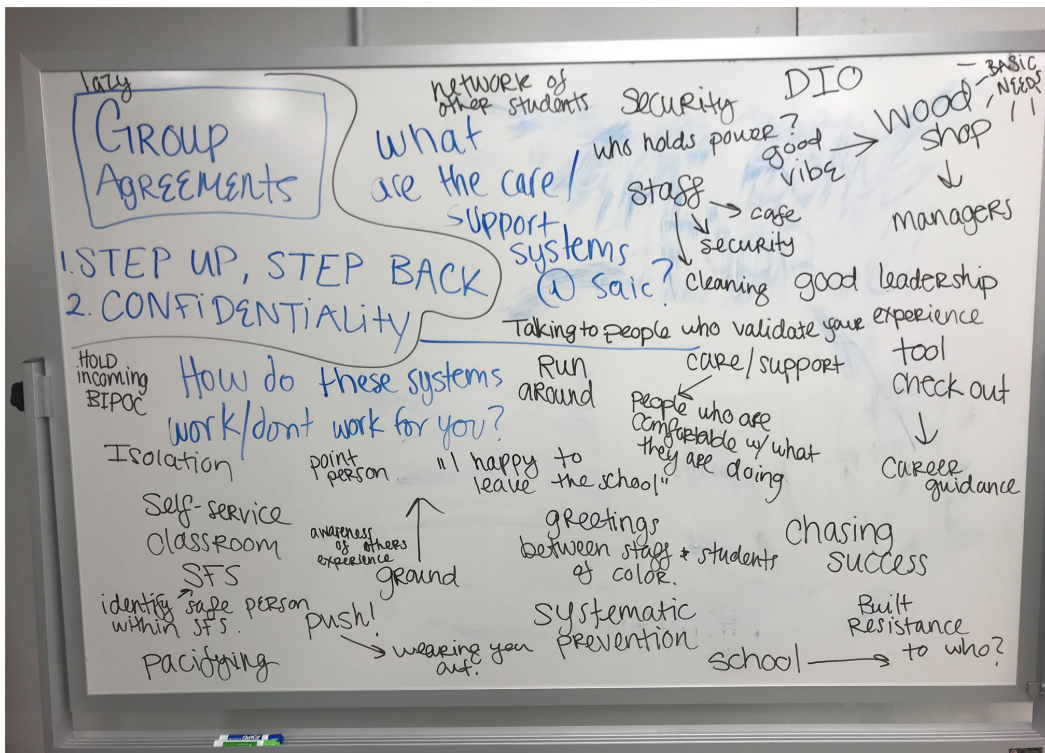 lazy
GROUP
AGREEMENTS
1. STEP UP, STEP BACK
2. CONFIDENTIALITY
network of
other students
what
are the care/
support
systems
@ saic?
Security
who holds power?
DIO
good
vibe
wood
shop
BASIC
NEEDS
managers
staff
cafe
security
Cleaning
good leadership
Taking to people who validate your experience
care/support
people who are
comfortable w/ what
they are doing
tool
check out
career
guidance
HOLD
incoming
BIPOC
How do these systems
work/dont work for you?
Run
around
Isolation
point
person
"I happy to
leave the school"
Self-service
classroom
SFS
awareness
of others
experience
ground
greetings
between staff + students
of color.
Chasing
success
identify safe person
within SFS.
push!
wearing you
out.
pacifying
systematic
prevention
school
Built
Resistance
to who?